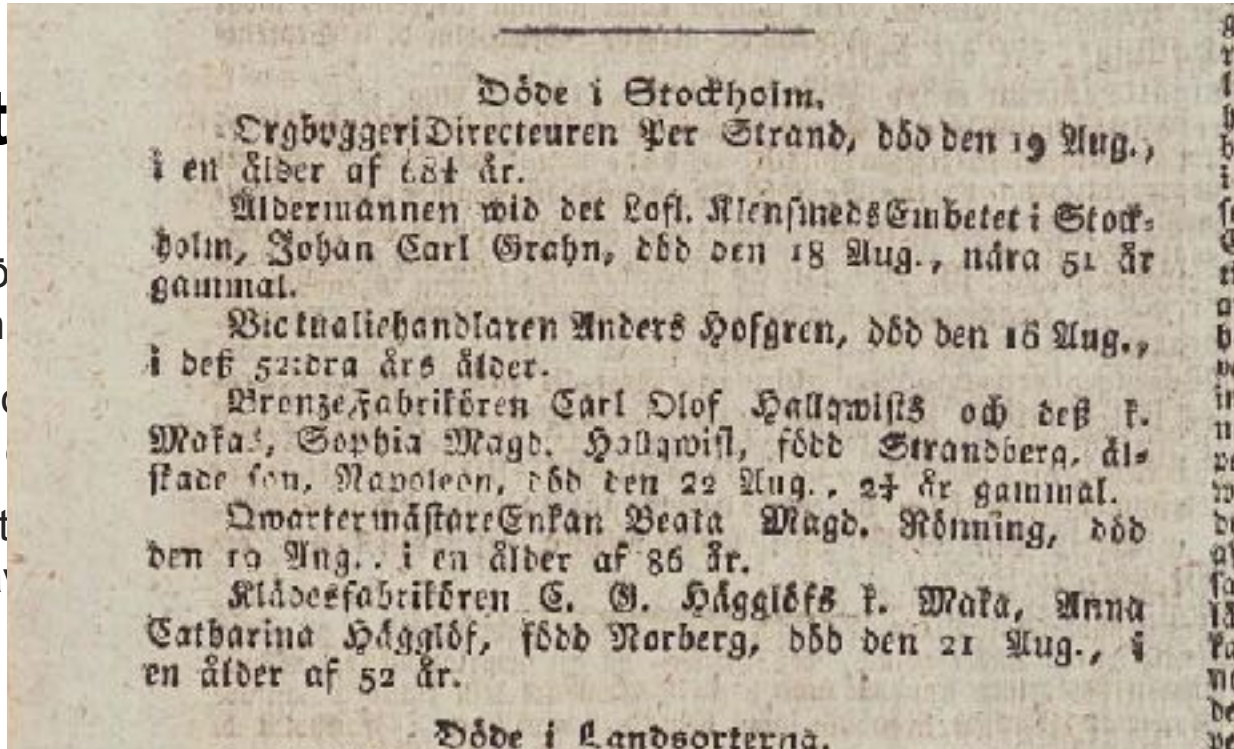 Döde i Stockholm.
OrgbyggeriDirecteuren Per Strand, död den 19 Aug.,
i en ålder af år.
Åldermannen wid det Lofl. KlensmedsEmbetet i Stock-
holm, Johan Carl Grahn, död den 18 Aug., nära 51 år
gammal.
Victualiehandlaren Anders Hofgren, död den 18 Aug.,
i deß 52:dra års ålder.
BronzeFabrikören Carl Olof Hallqwists och deß k.
Makas, Sophia Magd. Hallqwist, född Strandberg, äl-
skade son, Napoleon, död den 22 Aug., år gammal.
QwartermästareEnkan Beata Magd. Rönning, död
den 19 Aug., i en ålder af 86 år.
Klädesfabrikören C. G. Hägglöfs k. Maka, Anna
Catharina Hägglöf, född Norberg, död den 21 Aug., i
en ålder af 52 år.
Döde i Landsorterna.